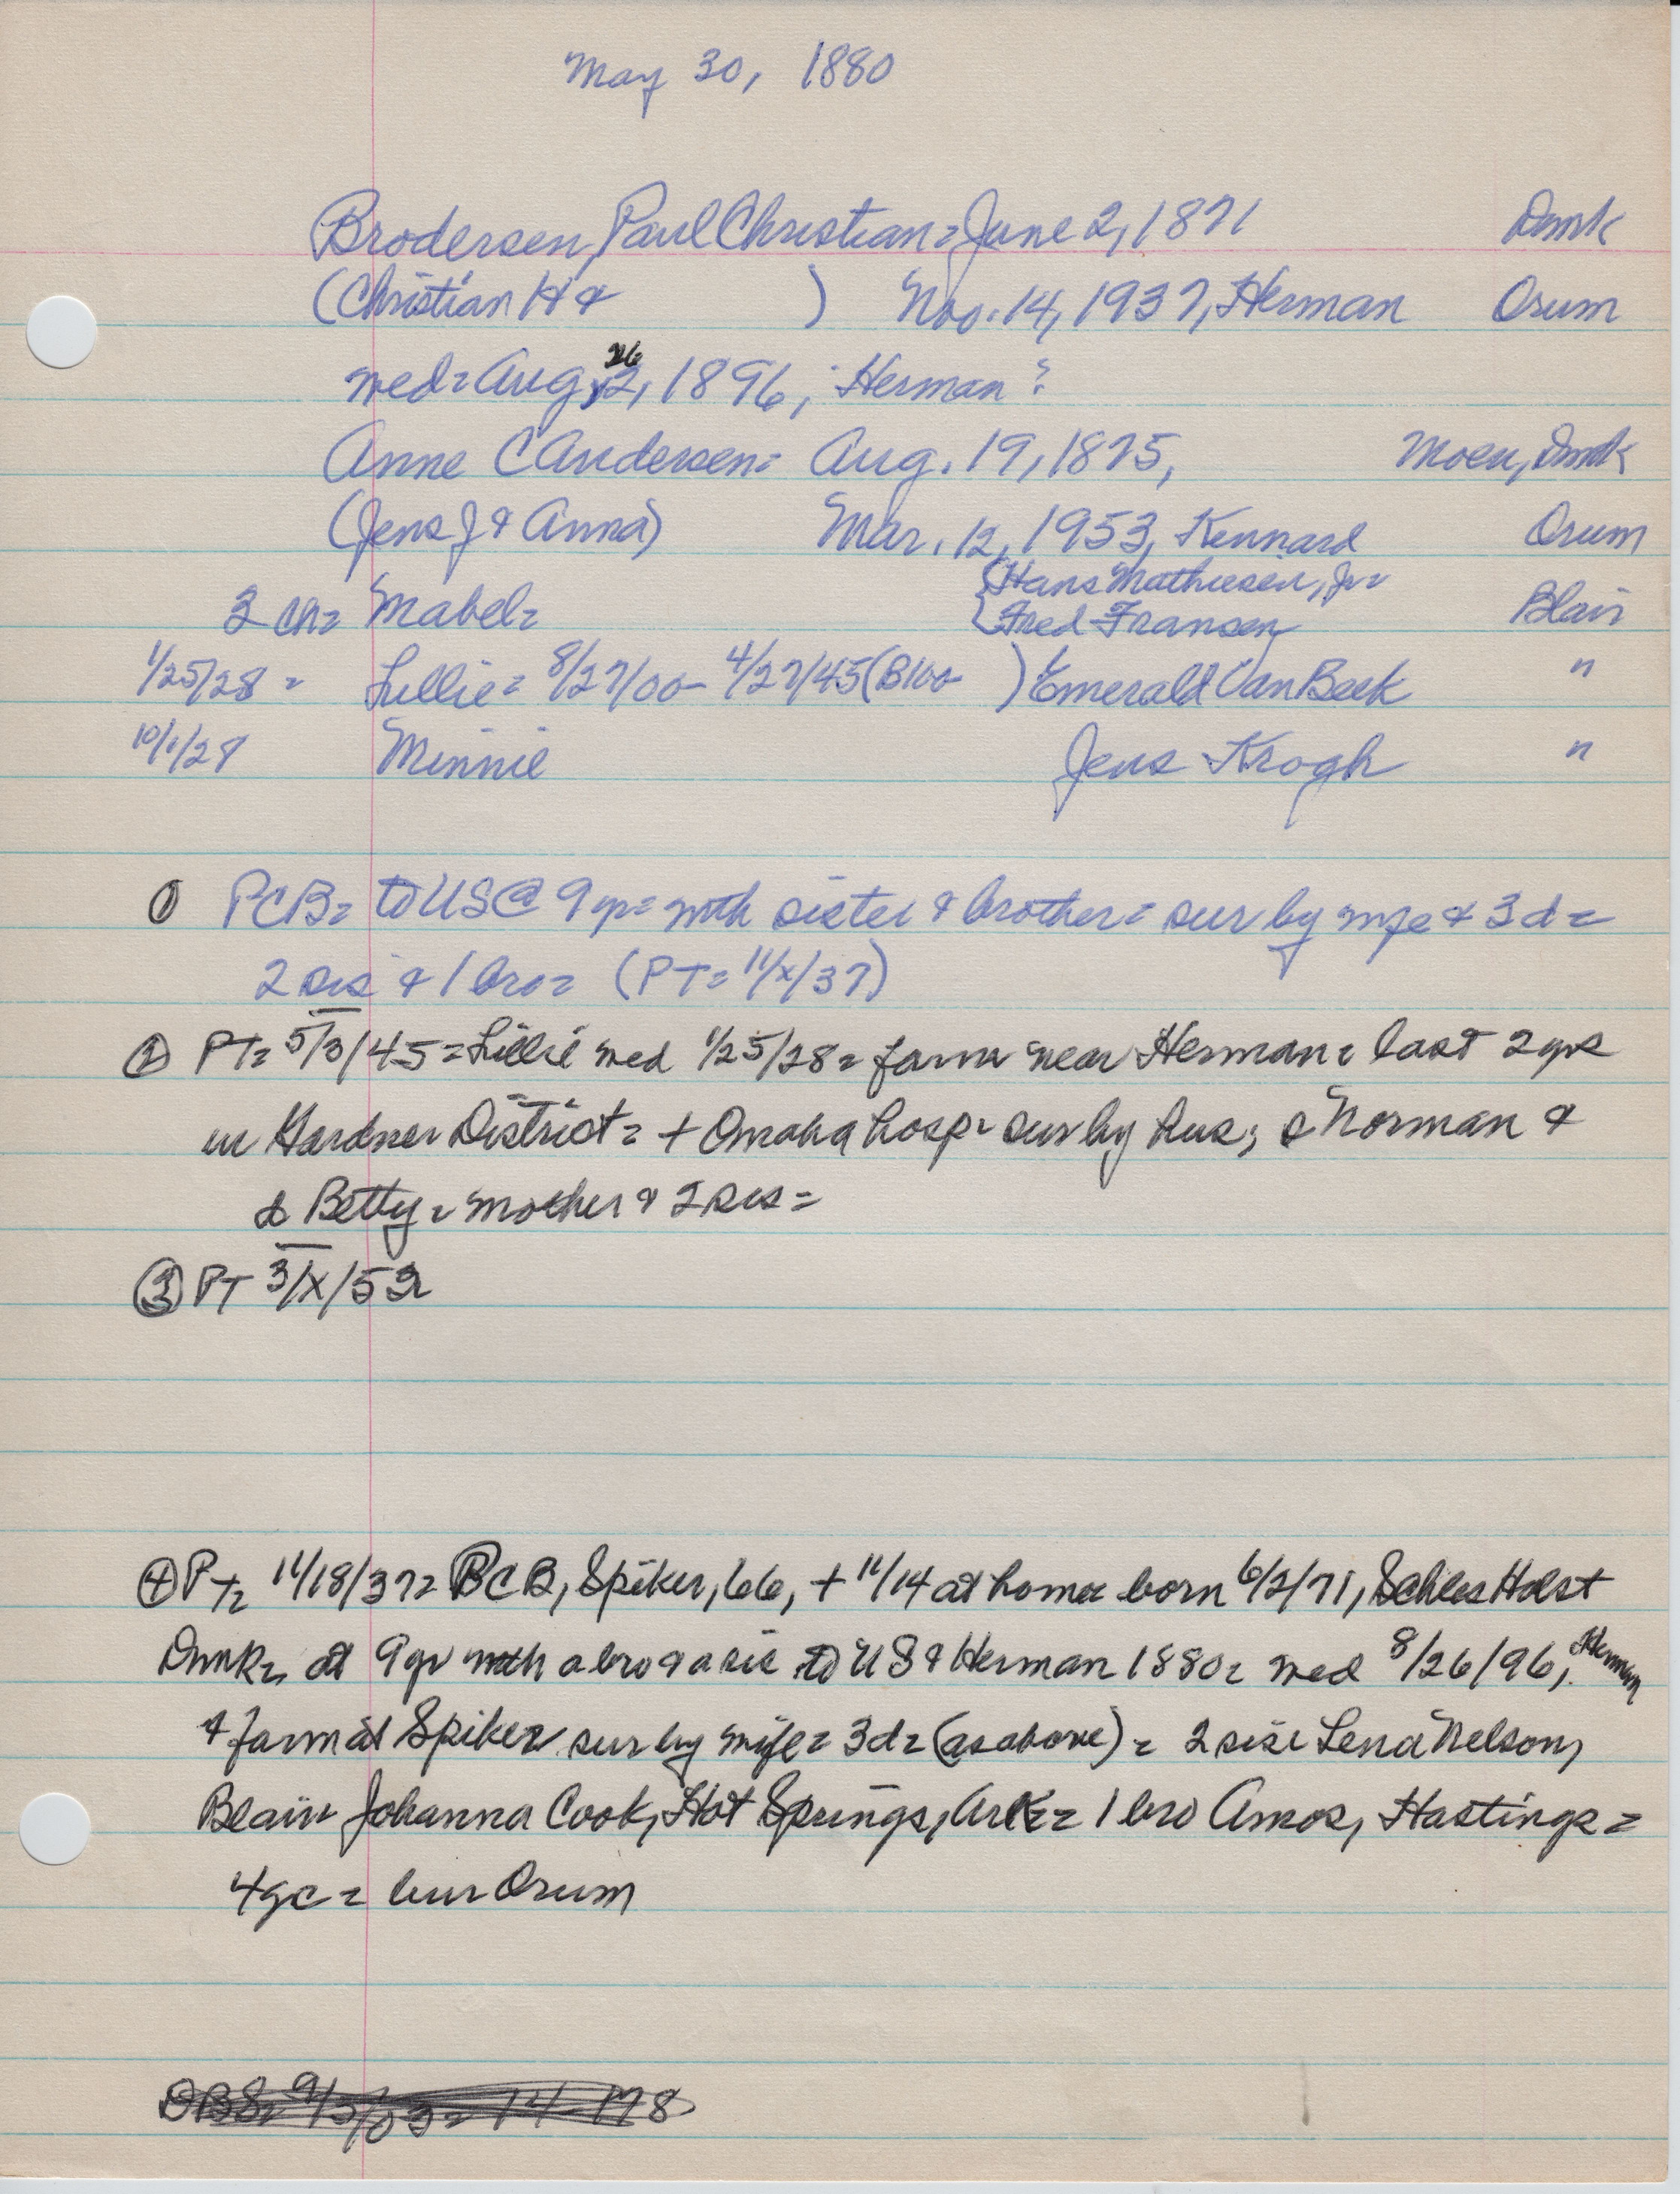 May 30, 1880
Brodersen, Paul Christian = June 2, 1871 Dmk
(Christian H & ) Nov. 14, 1937, Herman Orum
wed = Aug, 26 2, 1896, Herman ?
Anne C Andersen = Aug. 19, 1875, Moen, Dmk
(Jens J & Anna) Mar. 12, 1953, Kennard Orum
3 ch = Mabel = { Hans Mathiesen, Jr =
{ Fred Fransen Blair
1/25/28 = Lillie = 8/27/00 - 4/27/45 ( ) Emerald Van Beek "
10/1/28 Minnie Jens Krogh "
① PCB = to US @ 9 yr = with sister & brother = sur by wife & 3 d =
2 sis & 1 bro = (PT = 11/x/37)
② PT = 5/3/45 = Lillie wed 1/25/28 = farm near Herman = last 2 yrs
in Gardner District = + Omaha hosp = sur by hus; s Norman &
d Betty = mother & 2 sis =
③ PT 3/X/53
④ PT = 11/18/37 = PCB, Spiker, 66, + 11/14 at home = born 6/2/71, Schles Holst
Dmk = at 9 yr with a bro & a sis to US & Herman 1880 = wed 8/26/96, Herman
& farm at Spiker sur by wife = 3 d = (as above) = 2 sis = Lena Nelson,
Blair Johanna Cook, Hot Springs, Ark = 1 bro Amos, Hastings =
4 gc = bur Orum